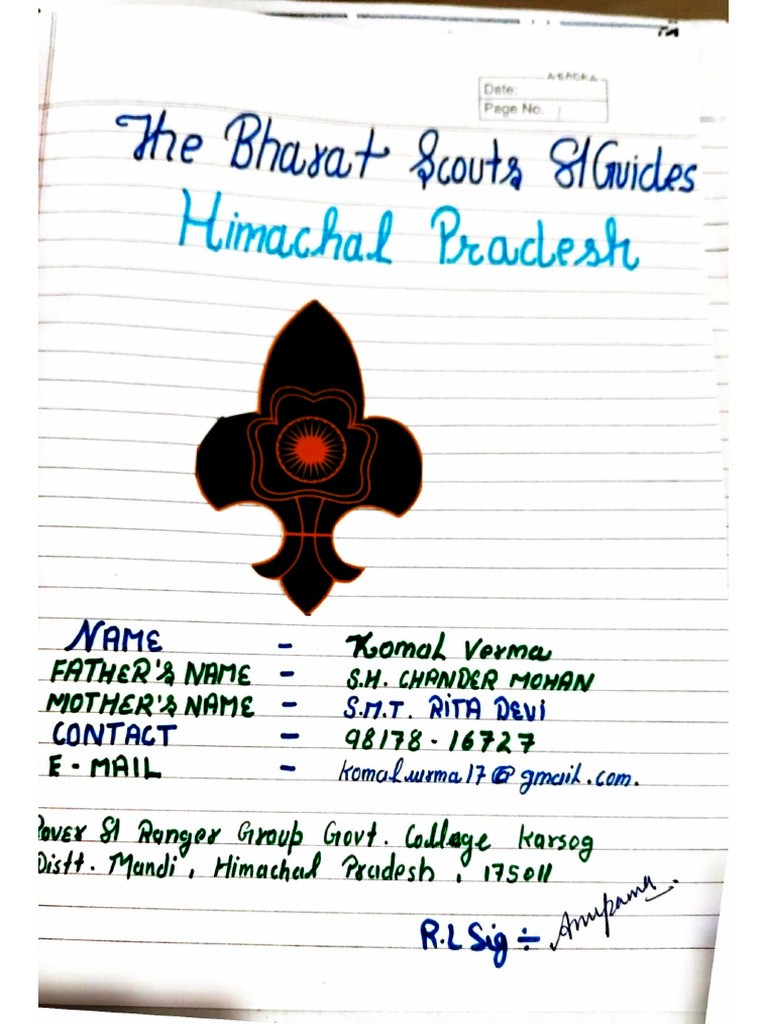 ASHOKA
Date:
Page No.
The Bharat Scouts & Guides
Himachal Pradesh
NAME - Komal Verma
FATHER'S NAME - S.H. CHANDER MOHAN
MOTHER'S NAME - S.M.T. RITA DEVI
CONTACT - 98178-16727
E-MAIL - @gmail.com.
Rover & Ranger Group Govt. College Karsog
Distt. Mandi, Himachal Pradesh, 175011
R.L Sig ÷ Anupama